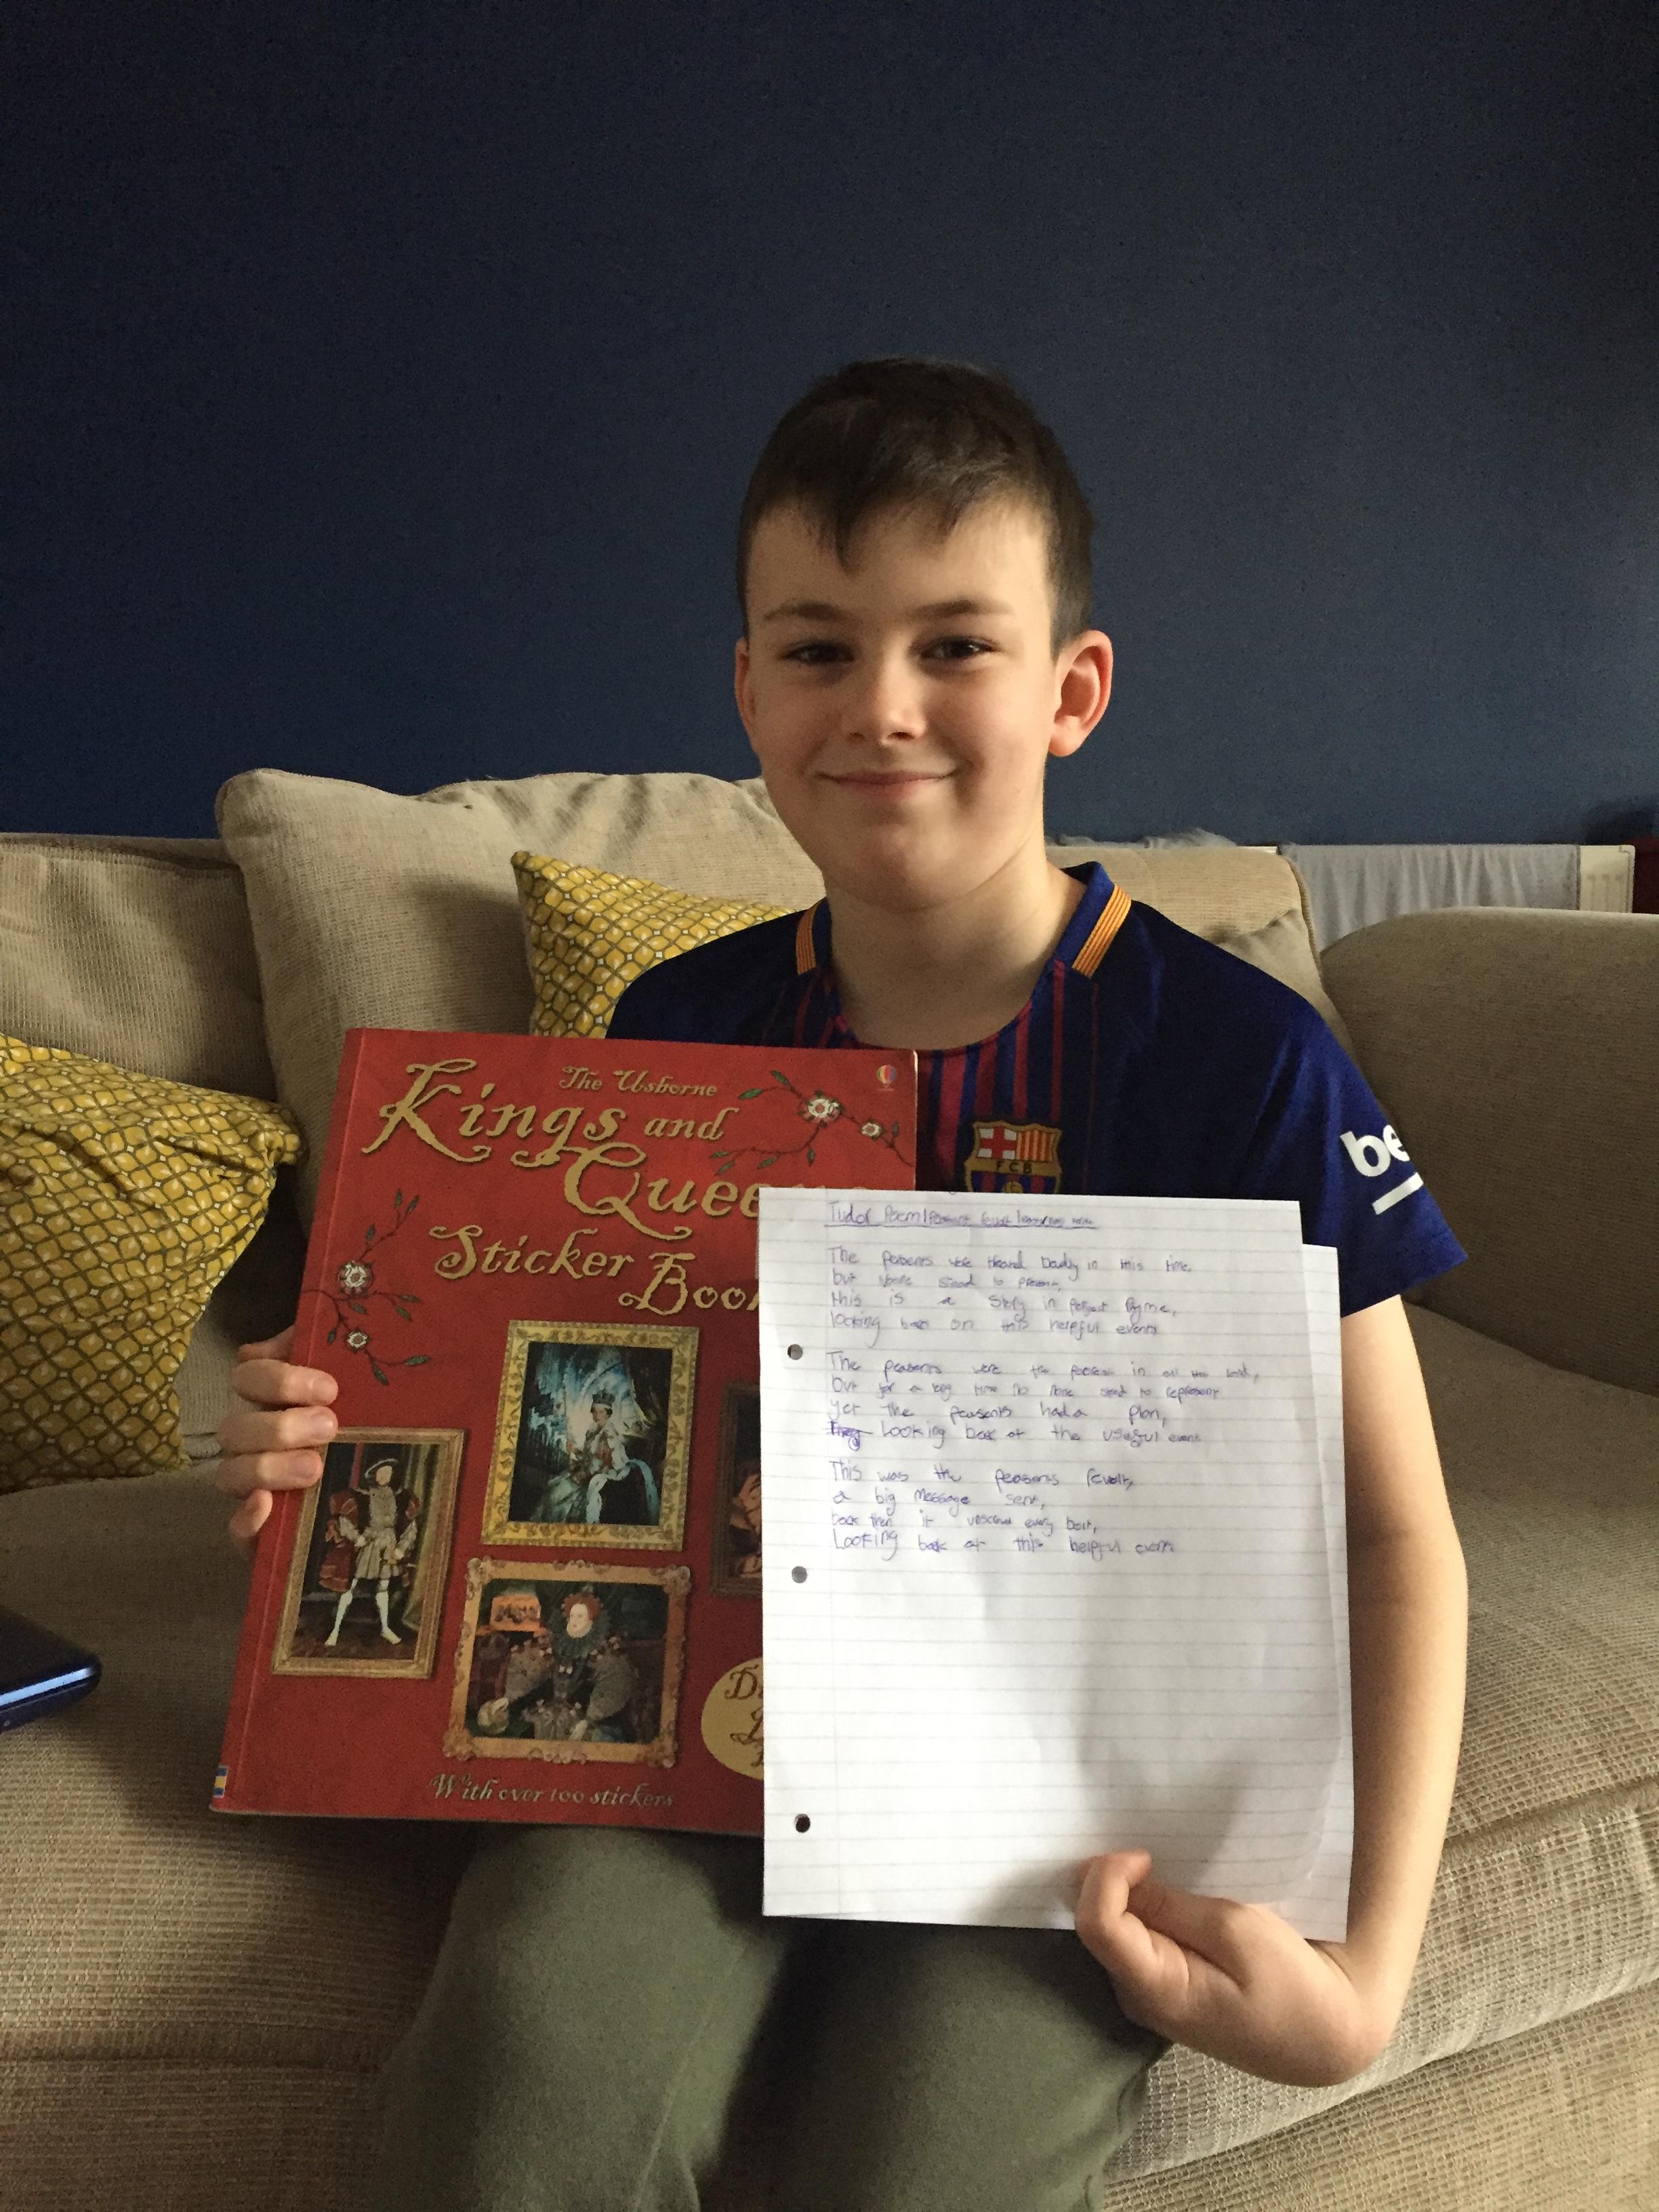 The Usborne
Kings and
Quee
Sticker Boo
With over 100 stickers
D
FCB
be
Tudor Poem/Peasants
The peasents were badly in this time,
but
this is a story in perfect Ryme,
looking back on this helpful event
The peasents were the poorest in all the land,
but for a long time no none to represent
yet the peasents had a plan,
Looking back at the useful event
This was the peasents revolt,
a big message sent,
back then it every bolt,
Looking back at this helpful event